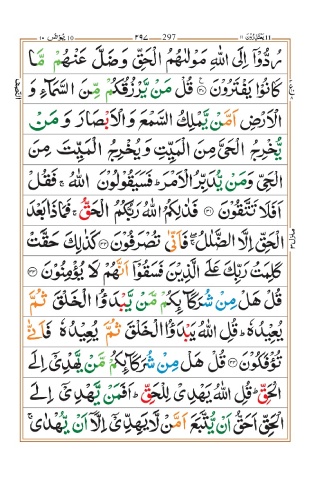 يعتذرون ١١ 297 ٢٩٧ يونس ١٠
رُدُّوْۤا اِلَى اللّٰهِ مَوْلٰىهُمُ الْحَقِّ وَضَلَّ عَنْهُمْ مَّا
كَانُوْا يَفْتَرُوْنَ ۝۳۰ قُلْ مَنْ يَّرْزُقُكُمْ مِّنَ السَّمَآءِ وَ
الْاَرْضِ اَمَّنْ يَّمْلِكُ السَّمْعَ وَالْاَبْصَارَ وَمَنْ
يُّخْرِجُ الْحَيَّ مِنَ الْمَيِّتِ وَيُخْرِجُ الْمَيِّتَ مِنَ
الْحَيِّ وَمَنْ يُّدَبِّرُ الْاَمْرَ ؕ فَسَيَقُوْلُوْنَ اللّٰهُ ۚ فَقُلْ
اَفَلَا تَتَّقُوْنَ ۝۳۱ فَذٰلِكُمُ اللّٰهُ رَبُّكُمُ الْحَقُّ ۚ فَمَاذَا بَعْدَ
الْحَقِّ اِلَّا الضَّلٰلُ ۖۚ فَاَنّٰى تُصْرَفُوْنَ ۝۳۲ كَذٰلِكَ حَقَّتْ
كَلِمَتُ رَبِّكَ عَلَى الَّذِيْنَ فَسَقُوْۤا اَنَّهُمْ لَا يُؤْمِنُوْنَ ۝۳۳
قُلْ هَلْ مِنْ شُرَكَآئِكُمْ مَّنْ يَّبْدَؤُا الْخَلْقَ ثُمَّ
يُعِيْدُهٗ ؕ قُلِ اللّٰهُ يَبْدَؤُا الْخَلْقَ ثُمَّ يُعِيْدُهٗ فَاَنّٰى
تُؤْفَكُوْنَ ۝۳۴ قُلْ هَلْ مِنْ شُرَكَآئِكُمْ مَّنْ يَّهْدِيْۤ اِلَى
الْحَقِّ ؕ قُلِ اللّٰهُ يَهْدِيْ لِلْحَقِّ ؕ اَفَمَنْ يَّهْدِيْۤ اِلَى
الْحَقِّ اَحَقُّ اَنْ يُّتَّبَعَ اَمَّنْ لَّا يَهِدِّيْۤ اِلَّاۤ اَنْ يُّهْدٰى ۚ